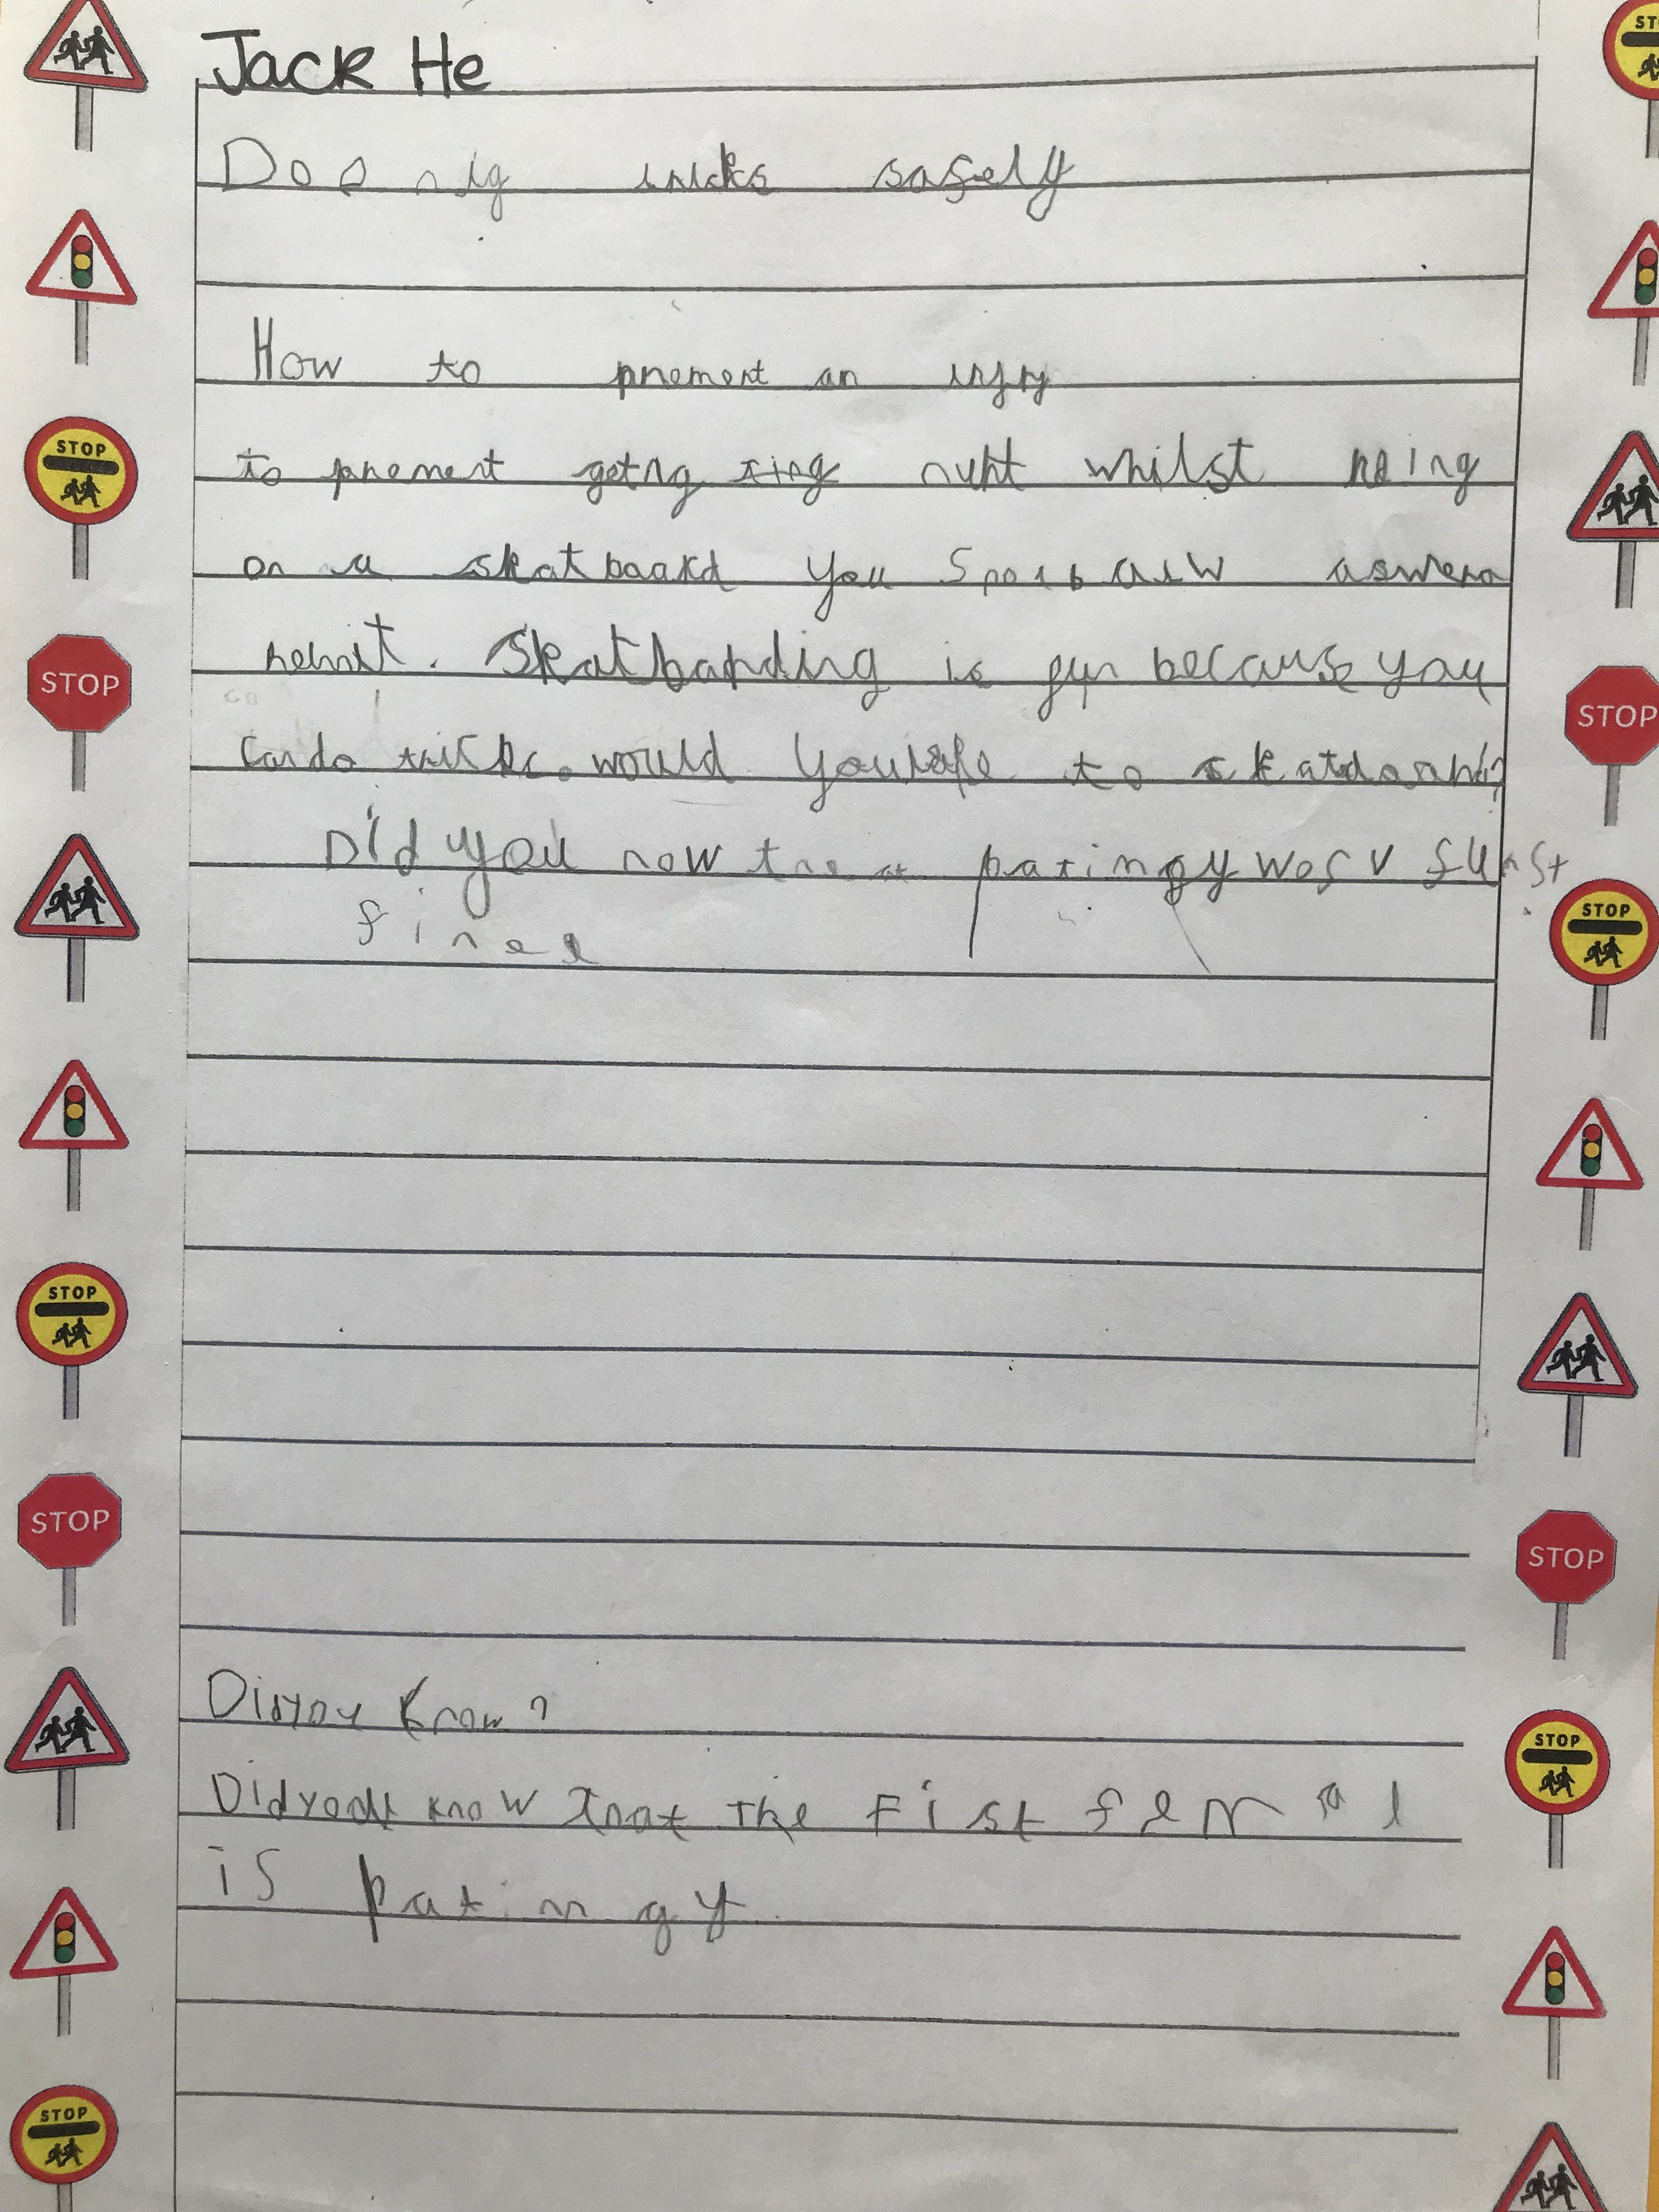 Jack He
Doonig tricks safely
How to prement an injry
to prement getng ting huht whilst riing
on a skatboard you
helmit. Skatbarding is fun because you
can do tricks. would you like to skatdoard?
Did you now that patingy was v furst
fimel
Didyou know?
Didyou know that the First femal
is patimgy
STOP
STOP
STOP
STOP
STOP
STOP
STOP
STOP
STOP
STOP